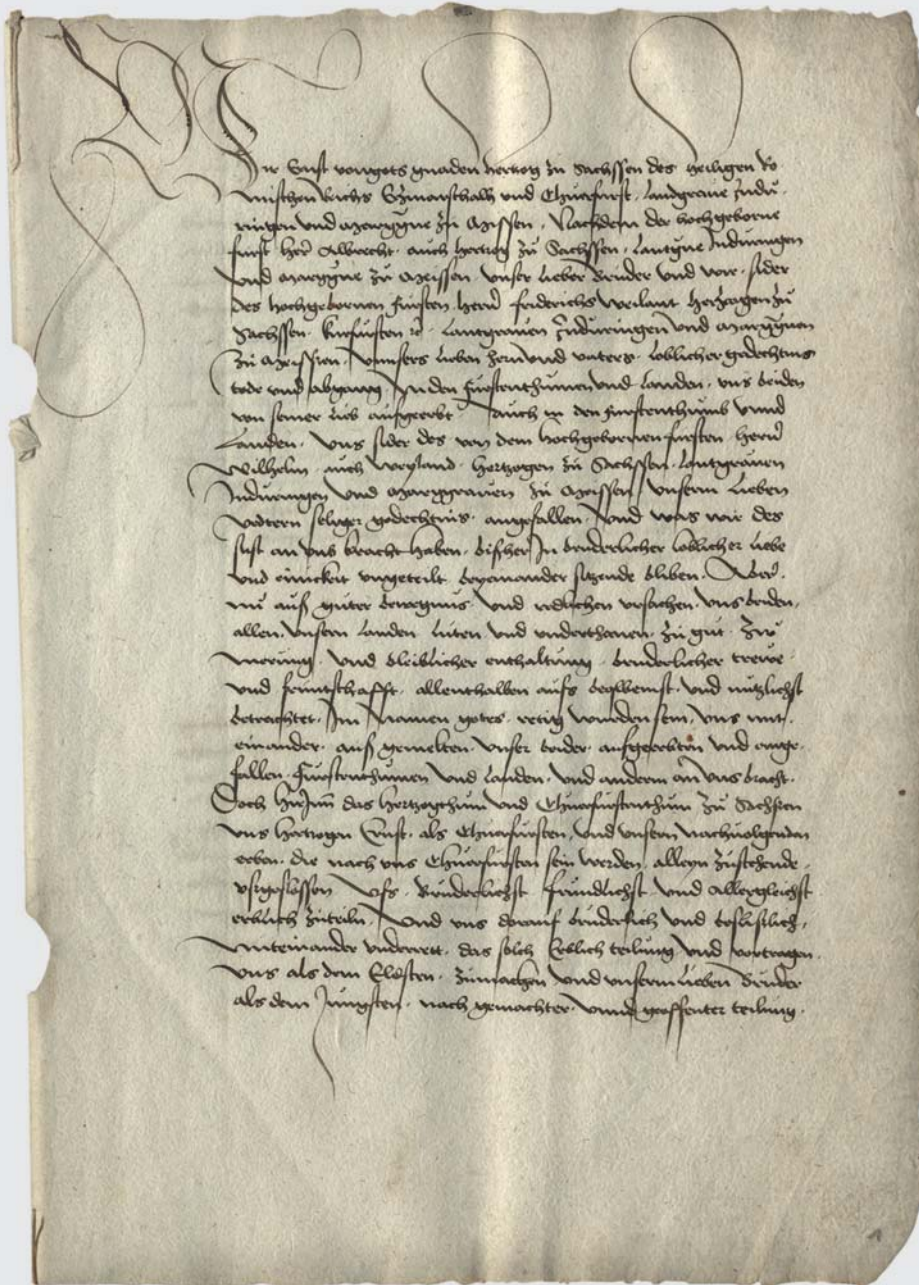 Wir Ernst von gots gnaden hertzog zu Sachssen des heiligen Ro
mischen Reichs Ertzmarschalh und Churfurst, Landgraue Indu
ringen und Marggraue zu Meissen, Nachdem der hochgeborne
furst her Albrecht, auch hertzog zu Sachssen, Lantgraue Induringen
und Marggraue zu Meissen, unser lieber Bruder und wir, sider
des hochgebornen fursten, hern friderichs weilant hertzogen zu
Sachssen, kurfursten etc. Lantgrauen Induringen und Marggrauen
zu Meissen, unnsers lieben hern und vaters, loblicher gedechtnis
tode und abgang, In den furstenthumen und landen, uns beiden
von seiner lieb aufgeerbt, Auch in den furstenthumb unnd
Landen, Uns sider des von dem hochgebornen fursten, hern
Wilhelm, auch weyland, hertzogen zu Sachssen, Lantgrauen
Induringen und Marggrauen zu Meissen, unserm lieben
vedtern seliger gedechtnis, angefallen, und was wir des
sust an uns bracht haben, bisher In bruderlicher loblicher liebe
und einickeit ungeteilt beyeinander sitzende bliben, Aber,
nu auß guter bewegnus, und redlichen ursachen, uns beiden,
allen, unsern landen luten und underthanen, zu gut, Zu
merung, und bleiblicher enthaltung, bruderlicher treuwe
und fruntschafft, allenthalben aufs beqwemst, und nutzlichst
betrachtet, Im Namen gotes, retig wurden sein, uns mit
einander, auß gemelten, unser beider, aufgeerbten und ange
fallen, furstenthumen und landen, und anderm an uns bracht,
Doch hirInn das hertzogthum und Churfurstenthum zu Sachssen
uns hertzogen Ernst, als Churfursten, und unsern nachuolgenden
erben, die nach uns Churfursten sein werden, alleyn zustehende,
ußgeslossen Ufs, Bruderlichst frundlichst und allergleichst
erblich zuteiln, Und uns dorauf bruderlich und
miteinander underrett, das solch Erblich teilung und
uns als dem Eldsten, zumachen und unserm lieben Bruder
als dem Jungsten, nach gemachter, unnd geoffenter teilung,